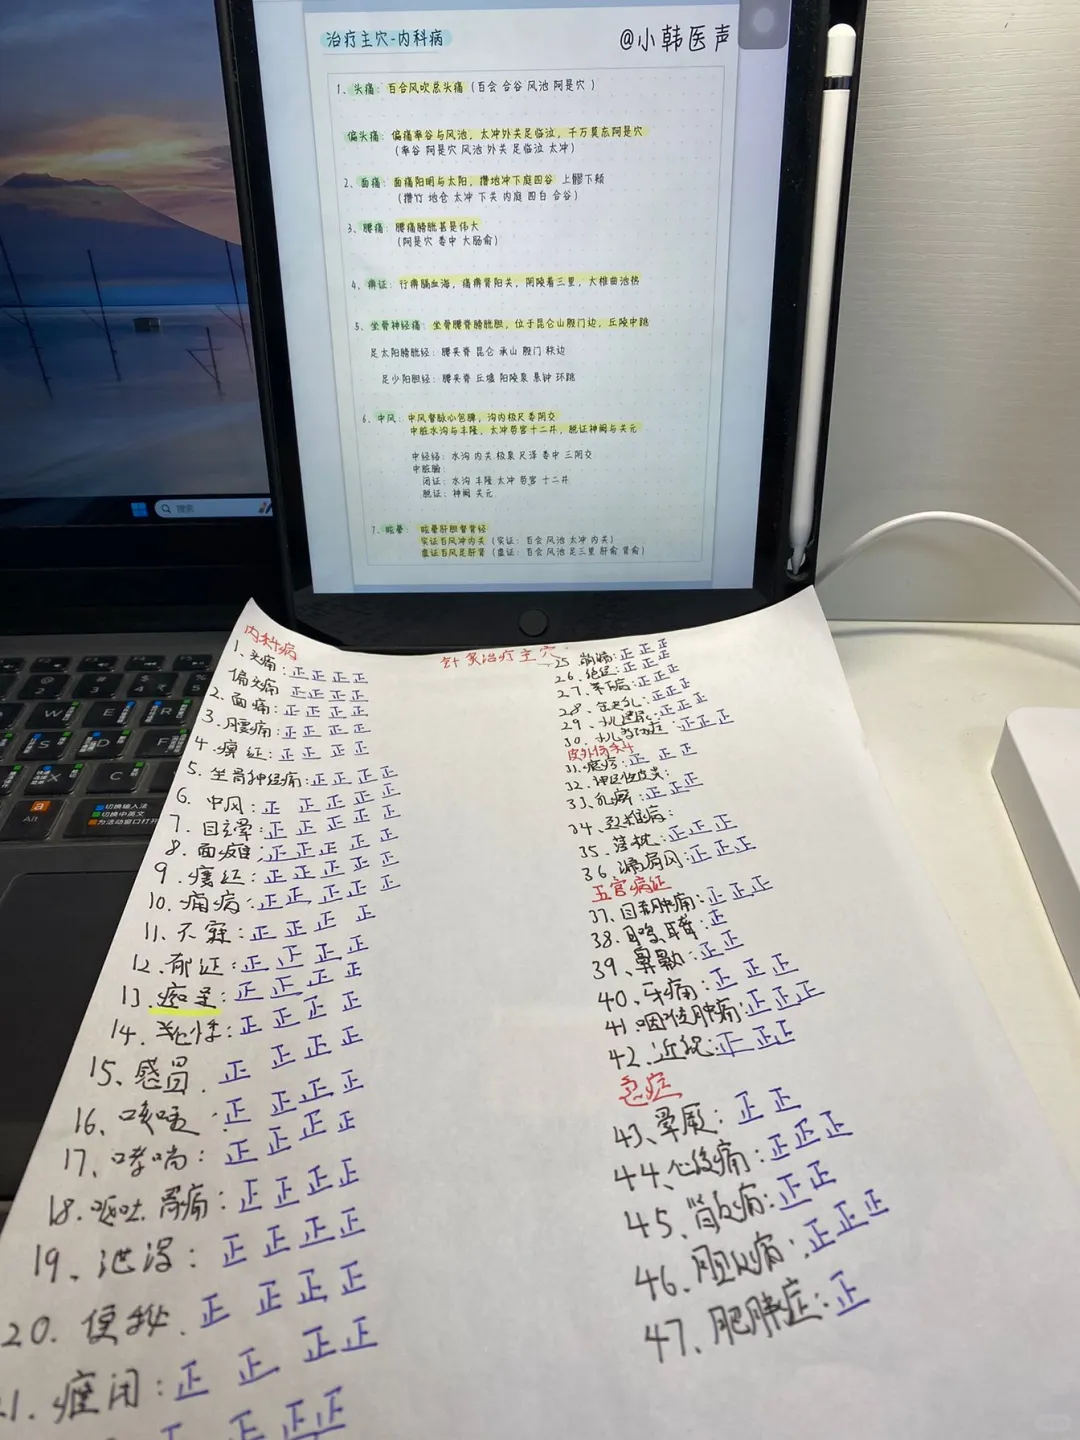 治疗主穴-内科病
@小韩医声
1、头痛：百合风吹总头痛（百会 合谷 风池 阿是穴 ）
偏头痛：偏痛率谷与风池，太冲外关足临泣，千万莫忘阿是穴
（率谷 阿是穴 风池 外关 足临泣 太冲）
2、面痛：面痛阳明与太阳，攒地冲下庭四谷 上髎下颊
（攒竹 地仓 太冲 下关 内庭 四白 合谷）
3、腰痛：腰痛膀胱甚是伟大
（阿是穴 委中 大肠俞）
4、痹证：行痹膈血海，痛痹肾阳关，阴陵着三里，大椎曲池热
5、坐骨神经痛：坐骨腰脊膀胱胆，位于昆仑山殷门边，丘陵中跳
足太阳膀胱经：腰夹脊 昆仑 承山 殷门 秩边
足少阳胆经：腰夹脊 丘墟 阳陵泉 悬钟 环跳
6、中风：中风督脉心包脾，沟内极尺委阴交
中脏水沟与丰隆，太冲劳宫十二井，脱证神阙与关元
中经络：水沟 内关 极泉 尺泽 委中 三阴交
中脏腑：
闭证：水沟 丰隆 太冲 劳宫 十二井
脱证：神阙 关元
7、眩晕：眩晕肝胆督背经
实证百风冲内关（实证：百会 风池 太冲 内关）
虚证百风足肝肾（虚证：百会 风池 足三里 肝俞 肾俞）
搜索
切换输入法
切换中英文
为活动窗口打开
Alt
针灸治疗主穴
内科病
1、头痛：正正正正
偏头痛 正正正正
2、面痛：正正正正
3、腰痛：正正正正
4、痹证：正正正正
5、坐骨神经痛：正正正正
6、中风：正正正正正
7、眩晕：正正正正正
8、面瘫：正正正正正
9、痿证：正正正正正
10、痫病：正正正正正
11、不寐：正正正正
12、郁证：正正正正
13、痴呆：正正正正
14、心悸：正正正正
15、感冒、正正正正
16、咳嗽：正正正正
17、哮喘：正正正正
18、呕吐、胃痛：正正正正
19、泄泻：正正正正
20、便秘、正正正正
21、癃闭：正正正正
25、崩漏：正正正
26、绝经：正正正
27、带下病：正正正
28、缺乳：正正正
29、小儿遗尿：正正正
30、小儿多动症：正正正
皮外伤科
31、瘾疹：正正正
32、神经性皮炎：
33、乳癖：正正正
34、颈椎病：
35、落枕：正正正
36、漏肩风：正正正
五官病证
37、目赤肿痛：正正正
38、耳鸣、耳聋：正
39、鼻鼽：正正
40、牙痛：正正正
41、咽喉肿痛：正正正
42、近视：正正正
急症
43、晕厥：正正
44、心绞痛：正正正
45、肾绞痛：正正
46、胆绞痛：正正正
47、肥胖症：正